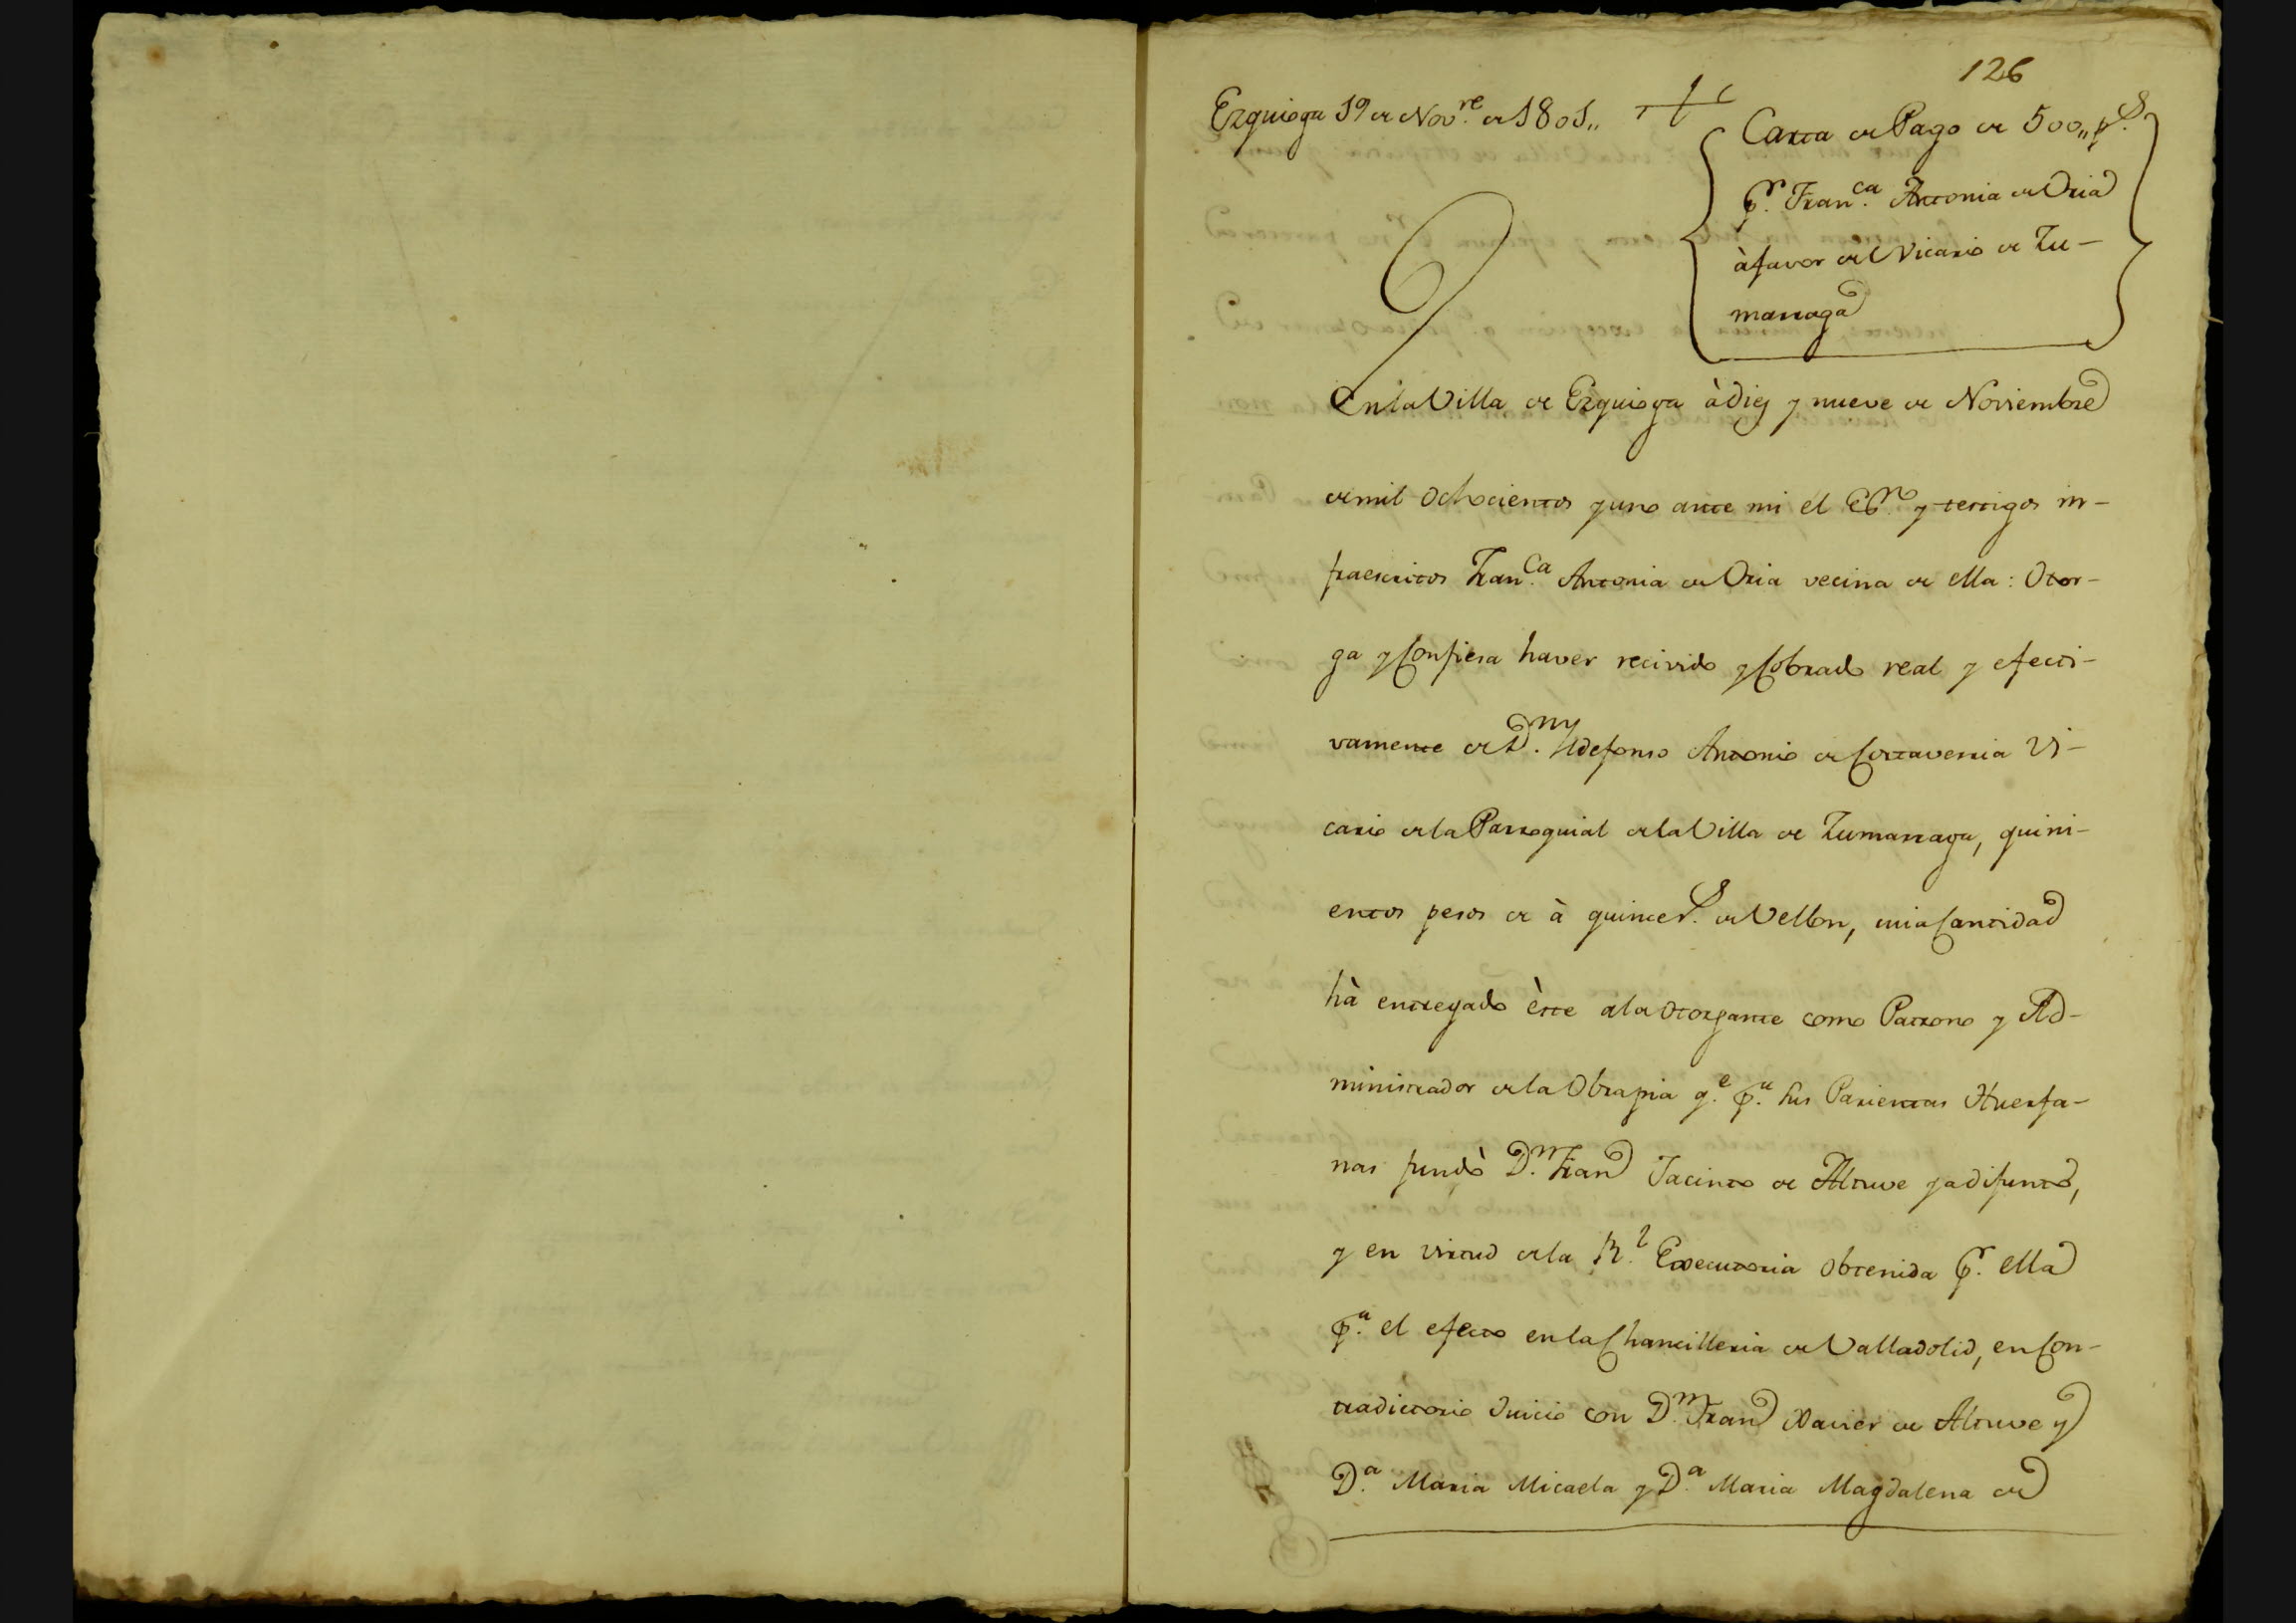 126
Ezquioga 19 de Nov.re de 1801,,
Carta de Pago de 500,, p.s
P.r Fran.ca Antonia de Oria
à favor del Vicario de Zu-
marraga
En la Villa de Ezquioga à diez y nueve de Noviembre
de mil Ochocientos y uno ante mi él Es.no y testigos in-
fraescritos Fran.ca Antonia de Oria vecina de ella: Otor-
ga y Confiesa haver recivido y Cobrado real y efecti-
vamente de D.n Yldefonso Antonio de Cortaverria Vi-
cario de la Parroquial de la Villa de Zumarraga, quini-
entos pesos de à quince r.s de Vellon, cuia Cantidad
hà entregado èste a la Otorgante como Patrono y Ad-
ministrador de la Obrapia q.e p.a sus Parientas Huerfa-
nas fundò D.n Fran.co Jacinto de Altuve ya difunto,
y en virtud de la R.l Executoria obtenida p.r ella
p.a el efecto en la Chancilleria de Valladolid, en Con-
tradictorio Juicio con D.n Fran.co Xavier de Altuve y
D.a Maria Micaela y D.a Maria Magdalena de